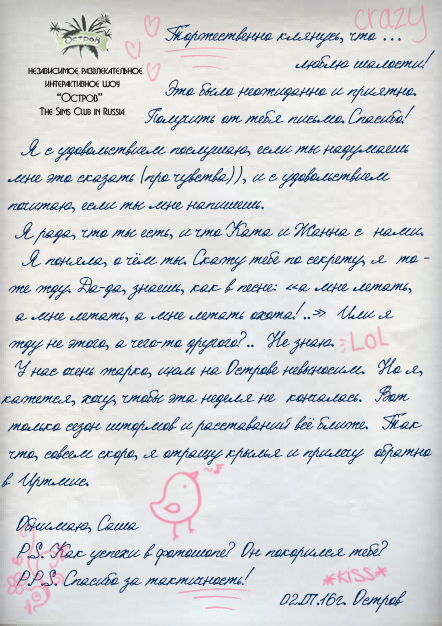 crazy
Остров
Независимое развлекательное
интерактивное шоу
"Остров"
The Sims Club in Russia
Торжественно клянусь, что ...
люблю шалости!
Это было неожиданно и приятно.
Получить от тебя письмо. Спасибо!
Я с удовольствием послушаю, если ты надумаешь
мне это сказать (про чувства)), и с удовольствием
почитаю, если ты мне напишешь.
Я рада, что ты есть, и что Ката и Жанна с нами.
Я поняла, о чём ты. Скажу тебе по секрету, я то-
же жду. Да-да, знаешь, как в песне: «а мне летать,
а мне летать, а мне летать охота!..» Или я
жду не этого, а чего-то другого?.. Не знаю.
LOL
У нас очень жарко, июль на Острове невыносим. Но я,
кажется, хочу, чтобы эта неделя не кончалась. Вот
только сезон штормов и расставаний всё ближе. Так
что, совсем скоро, я отращу крылья и примчу обратно
в Иртмис.
Обнимаю, Саша
P.S. Как успехи в фотошопе? Он покорился тебе?
P.P.S. Спасибо за тактичность!
*KISS*
02.07.16г. Остров